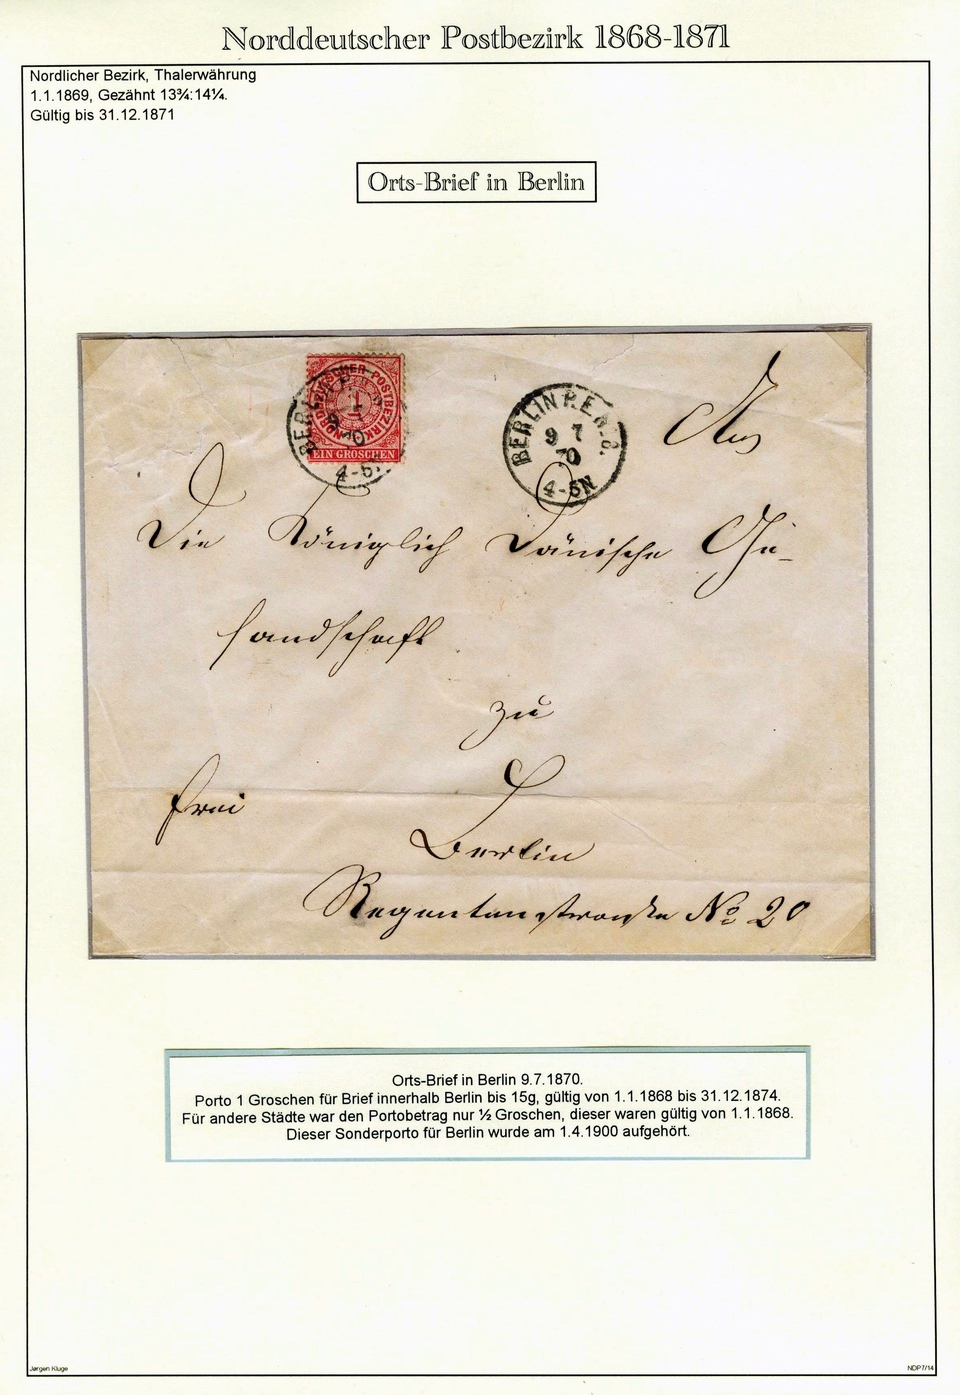 Norddeutscher Postbezirk 1868-1871
Nordlicher Bezirk, Thalerwährung
1.1.1869, Gezähnt 13¾:14¼.
Gültig bis 31.12.1871
Orts-Brief in Berlin
NORDDEUTSCHER POSTBEZIRK
1
EIN GROSCHEN
BERLIN
9 7
70
4-5N
BERLIN P.E.
9 7
70
4-5N
An
Die Königlich Dänische Ge-
sandschaft
zu
frei
Berlin
Regentenstraße No 20
Orts-Brief in Berlin 9.7.1870.
Porto 1 Groschen für Brief innerhalb Berlin bis 15g, gültig von 1.1.1868 bis 31.12.1874.
Für andere Städte war den Portobetrag nur ½ Groschen, dieser waren gültig von 1.1.1868.
Dieser Sonderporto für Berlin wurde am 1.4.1900 aufgehört.
Jørgen Kluge
NDP7/14